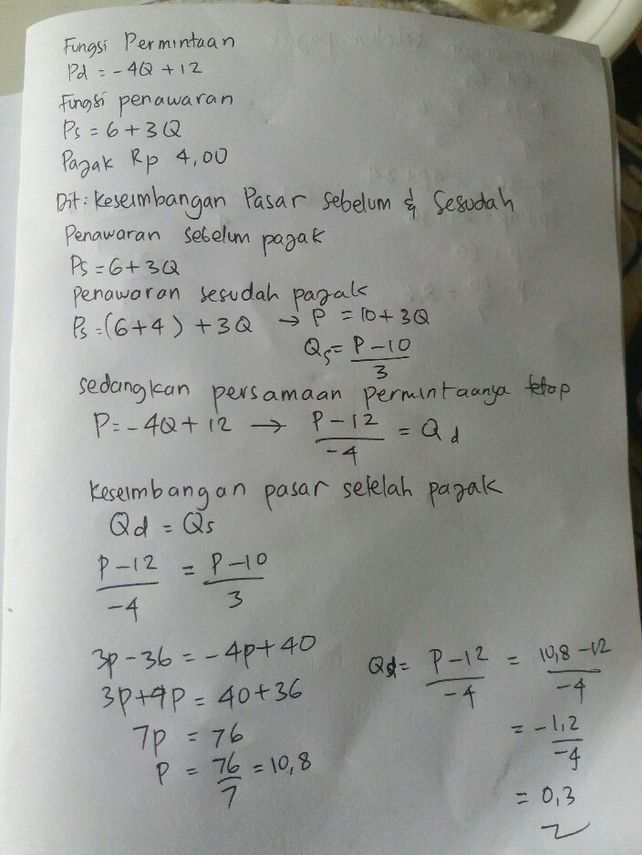 Fungsi Permintaan
Pd = -4Q + 12
Fungsi penawaran
Ps = 6 + 3Q
Pajak Rp 4,00
Dit : Keseimbangan Pasar sebelum & Sesudah
Penawaran sebelum pajak
Ps = 6 + 3Q
Penawaran sesudah pajak
Ps = (6+4) + 3Q → P = 10 + 3Q
Qs = P - 10 / 3
sedangkan persamaan permintaanya tetap
P = -4Q + 12 → P - 12 / -4 = Qd
Keseimbangan pasar setelah pajak
Qd = Qs
P - 12 / -4 = P - 10 / 3
3p - 36 = -4p + 40
3p + 4p = 40 + 36
7p = 76
P = 76 / 7 = 10,8
Qd = P - 12 / -4 = 10,8 - 12 / -4
= -1,2 / -4
= 0,3